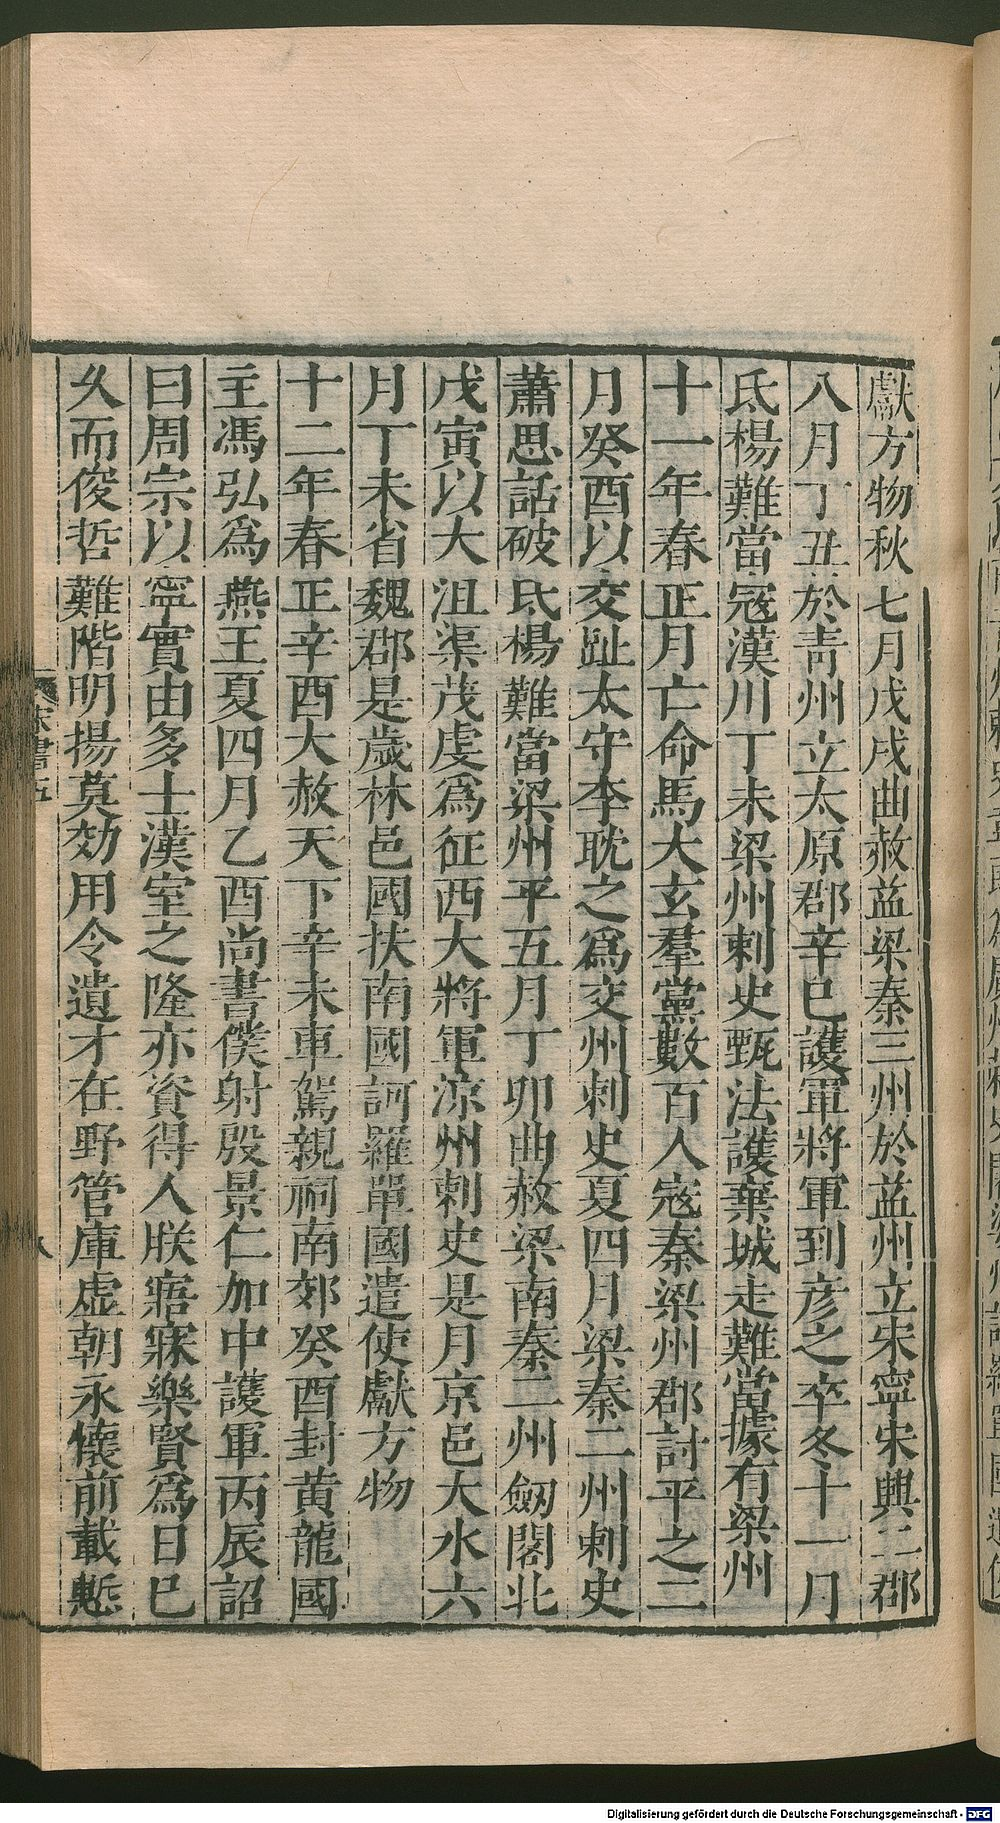 獻方物秋七月戊戌曲赦益梁秦三州於益州立宋寧宋興二郡
八月丁丑於青州立太原郡辛巳護軍將軍到彥之卒冬十一月
氐楊難當寇漢川丁未梁州刺史甄法護棄城走難當據有梁州
十一年春正月亡命馬大玄羣黨數百人寇秦梁州郡討平之二
月癸酉以交趾太守李耽之爲交州刺史夏四月梁秦二州刺史
蕭思話破氐楊難當梁州平五月丁卯曲赦梁南秦二州劔閣北
戊寅以大沮渠茂虔爲征西大將軍涼州刺史是月京邑大水六
月丁未省魏郡是歲林邑國扶南國訶羅單國遣使獻方物
十二年春正辛酉大赦天下辛未車駕親祠南郊癸酉封黃龍國
主馮弘爲燕王夏四月乙酉尚書僕射殷景仁加中護軍丙辰詔
曰周宗以寧實由多士漢室之隆亦資得人朕寤寐樂賢爲日巳
乆而俊哲難階明揚莫効用令遺才在野管庫虛朝永懷前載慙
宋書五
八
Digitalisierung gefördert durch die Deutsche Forschungsgemeinschaft - DFG